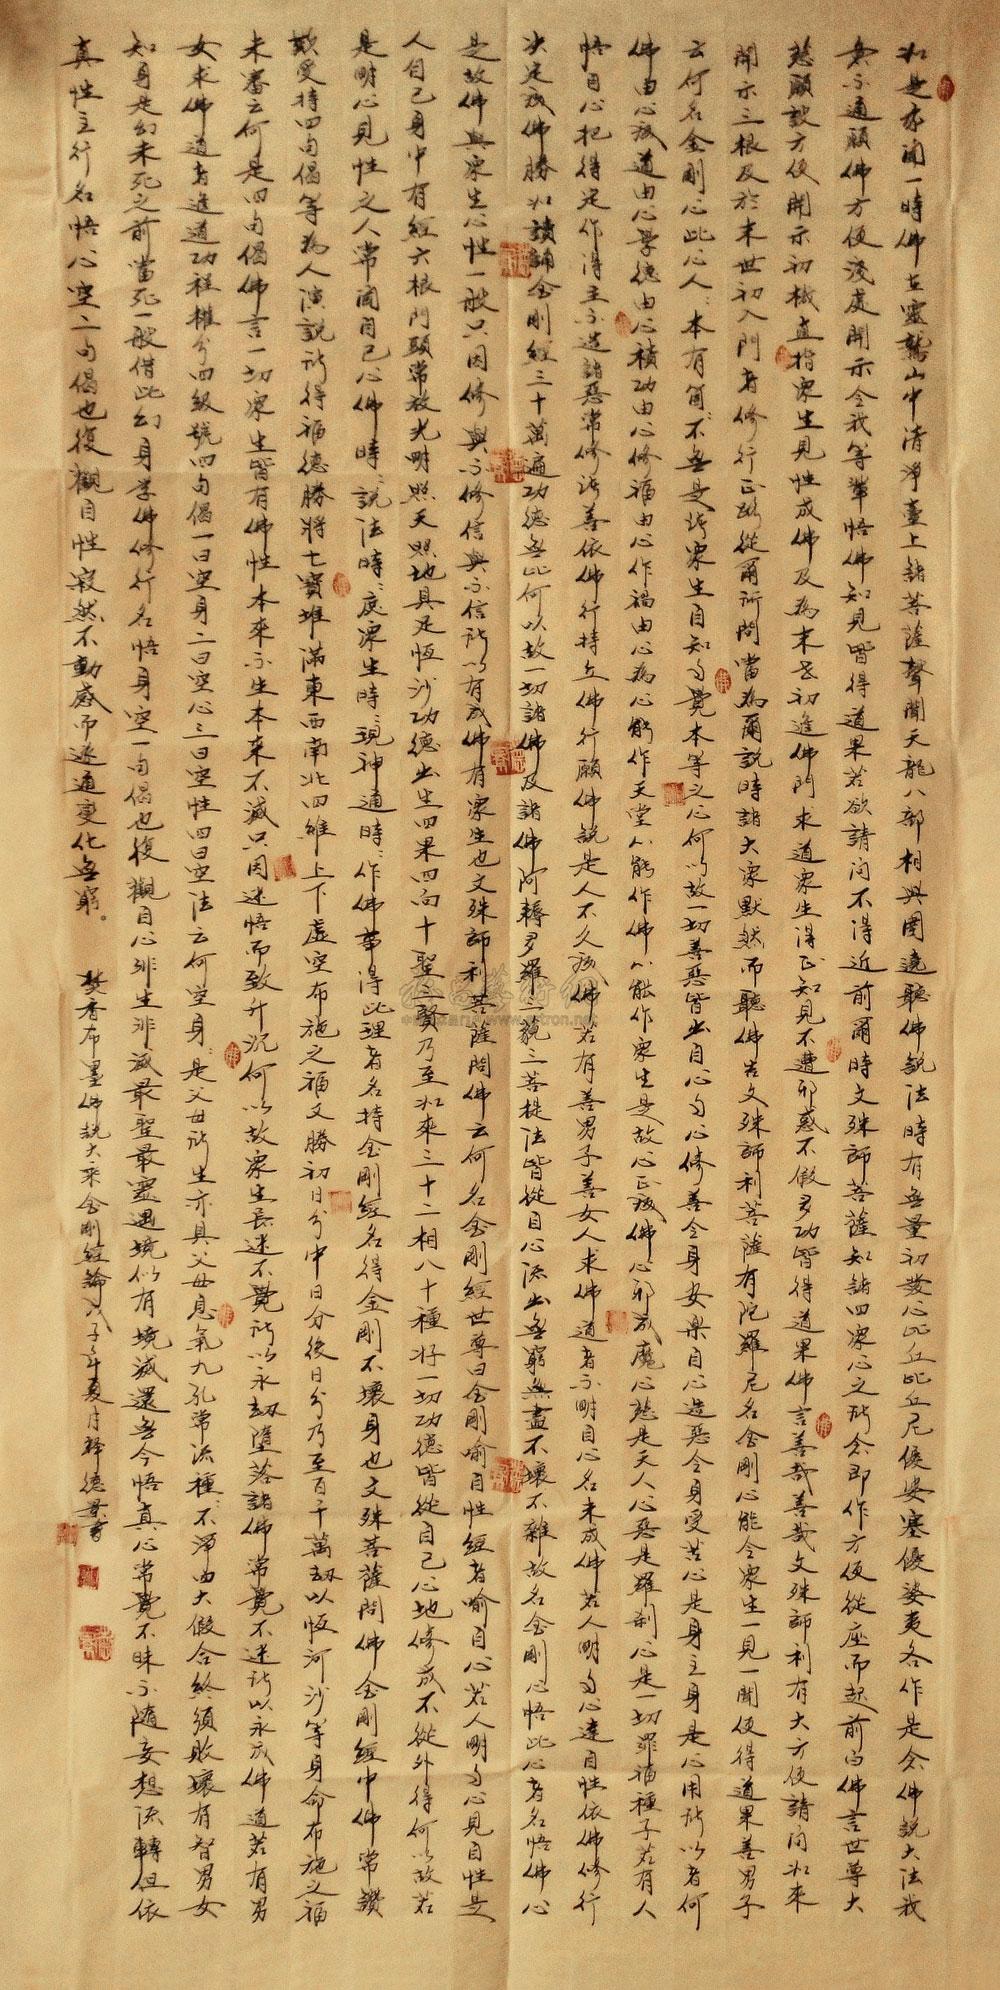 如是我聞一時佛在靈鷲山中清淨臺上諸菩薩聲聞天龍八部相與圍遶聽佛說法時有無量初發心比丘比丘尼優婆塞優婆夷各作是念佛說大法我
等不通願佛方便淺處開示令我等輩悟佛知見皆得道果若欲請問不得近前爾時文殊師菩薩知諸四眾心之所念即作方便從座而起前白佛言世尊大
慈願設方便開示初機直指眾生見性成佛及為末世初進佛門求道眾生得正知見不遭邪惑不假多功皆得道果佛言善哉善哉文殊師利有大方便請問如來
開示三根及於末世初入門者修行正路從爾所問當為爾說時諸大眾默然而聽佛告文殊師利菩薩有陀羅尼名金剛心能令眾生一見一聞便得道果善男子
云何名金剛心此心人人本有箇箇不無是諸眾生自知自覺本等之心何以故一切善惡皆出自心自心修善令身安樂自心造惡令身受苦心是身主身是心用所以者何
佛由心成道由心學德由心積功由心修福由心作禍由心為心能作天堂心能作佛心能作眾生是故心正成佛心邪成魔心慈是天人心惡是羅剎心是一切罪福種子若有人
悟自心把得定作得主不造諸惡常修諸善依佛行持立佛行願佛說是人不久成佛若有善男子善女人求佛道者不明自心名未成佛若人明自心達自性依佛修行
決定成佛勝如讀誦金剛經三十萬遍功德無比何以故一切諸佛及諸佛阿耨多羅三藐三菩提法皆從自心流出無窮無盡不壞不雜故名金剛心悟此心者名悟佛心
是故佛與眾生心性一般只因修與不修信與不信所以有成佛有眾生也文殊師利菩薩問佛云何名金剛經世尊曰金剛喻自性經者喻自心若人明自心見自性是
人自己身中有經六根門頭常放光明照天照地具足恆沙功德出生四果四向十聖三賢乃至如來三十二相八十種好一切功德皆從自己心地修成不從外得何以故若
是明心見性之人常聞自己心佛時時說法時時度眾生時時現神通時時作佛事得此理者名持金剛經名得金剛不壞身也文殊菩薩問佛金剛經中佛常讚
歎受持四句偈等為人演說所得福德勝將七寶堆滿東西南北四維上下虛空布施之福又勝初日分中日分後日分乃至百千萬劫以恆河沙等身命布施之福
未審云何是四句偈佛言一切眾生皆有佛性本來不生本來不滅只因迷悟而致升沉何以故眾生長迷不覺所以永劫墮落諸佛常覺不迷所以永成佛道若有男
女求佛道者進道功程權分四級號四句偈一曰空身二曰空心三曰空性四曰空法云何空身身是父母所生亦具父母息氣九孔常流種種不淨四大假合終須敗壞有智男女
知身是幻未死之前當死一般借此幻身學佛修行名悟身空一句偈也復觀自心非生非滅最聖最靈遇境似有境滅還無今悟真心常覺不昧不隨妄想流轉但依
真性主行名悟心空二句偈也復觀自性寂然不動感而遂通變化無窮。
焚香布墨佛說大乘金剛經論戊子年夏月釋德書